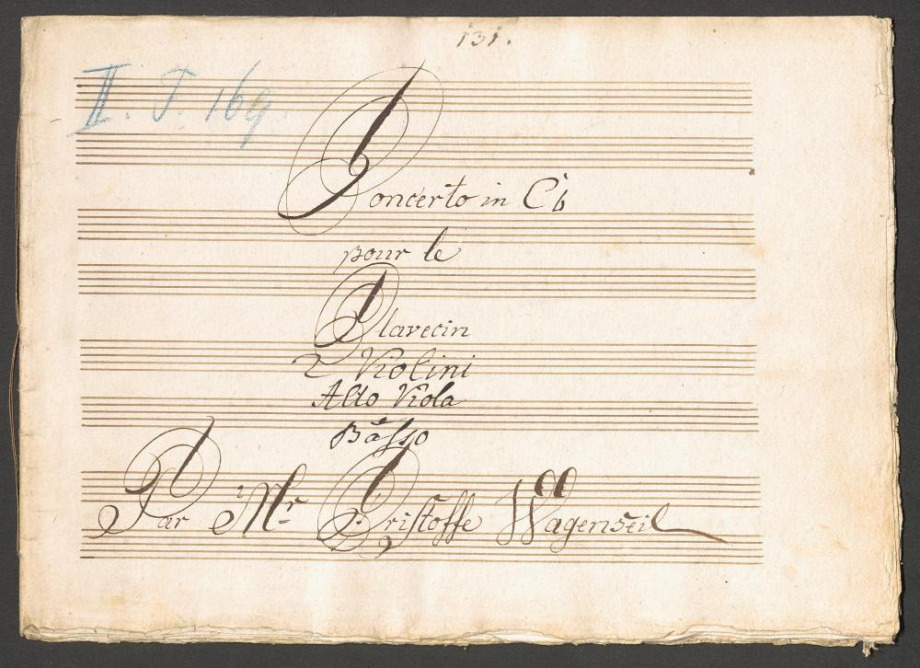 131.
II. J. 169.
Concerto in C♭
pour le
Clavecin
2 Violini
Alto Viola
Basso
Par Mr Cristoffe Wagenseil